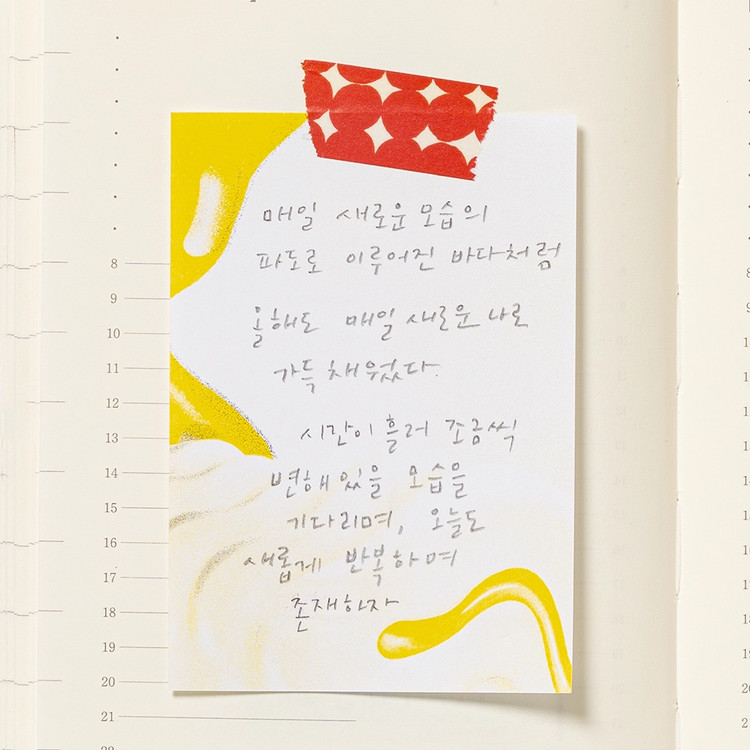 매일 새로운 모습의
파도로 이루어진 바다처럼
올해도 매일 새로운 나로
가득 채웠다.
시간이 흘러 조금씩
변해있을 모습을
기다리며, 오늘도
새롭게 반복하며
존재하자
8
9
10
11
12
13
14
15
16
17
18
19
20
21